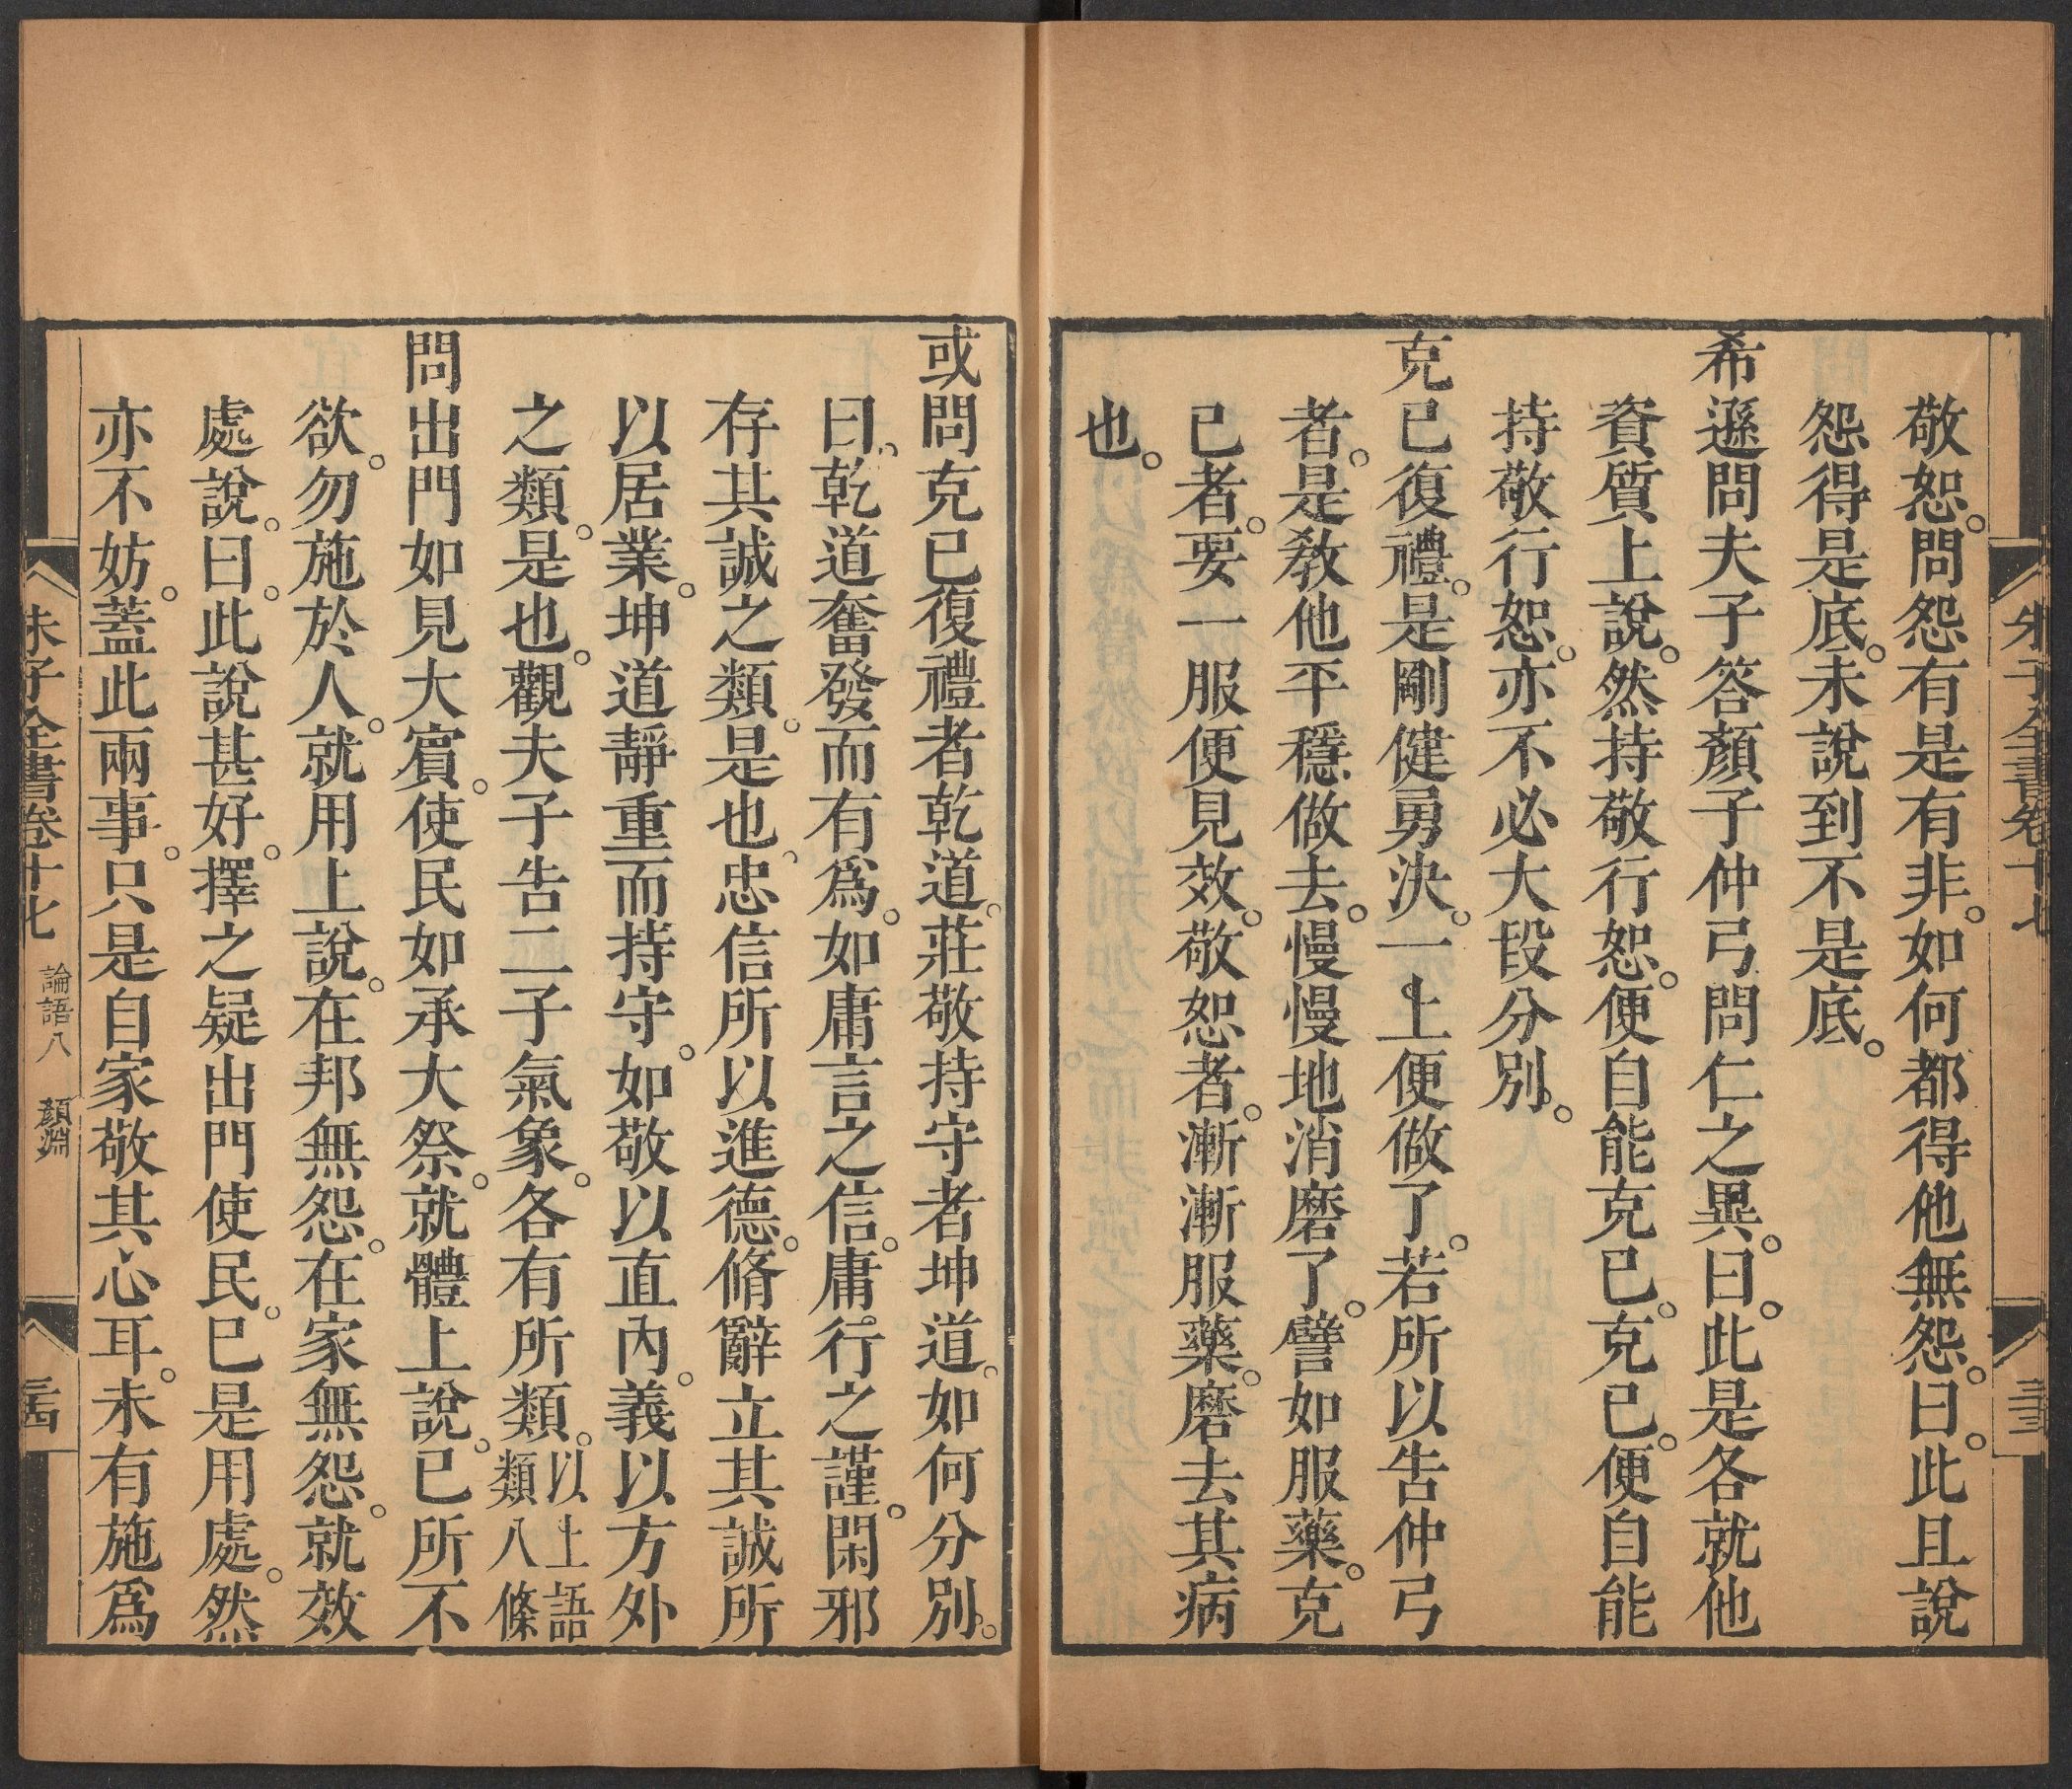 朱子全書卷十七
三三
敬恕。問怨有是有非。如何都得他無怨。曰。此且說
怨得是底。未說到不是底。
希遜問夫子答顏子仲弓問仁之異。曰。此是各就他
資質上說。然持敬行恕。便自能克己。克己。便自能
持敬行恕。亦不必大段分別。
克己復禮。是剛健勇決。一上便做了。若所以告仲弓
者。是教他平穩做去。慢慢地消磨了。譬如服藥。克
己者。要一服便見效。敬恕者。漸漸服藥。磨去其病
也。
或問克己復禮者乾道。莊敬持守者坤道。如何分別。
曰。乾道奮發而有爲。如庸言之信。庸行之謹。閑邪
存其誠之類。是也。忠信所以進德。脩辭立其誠所
以居業。坤道靜重而持守。如敬以直內。義以方外
之類。是也。觀夫子告二子氣象。各有所類。以上語類八條
問出門如見大賓。使民如承大祭。就體上說。己所不
欲。勿施於人。就用上說。在邦無怨。在家無怨。就效
處說。曰。此說甚好。擇之疑出門使民。已是用處。然
亦不妨。蓋此兩事。只是自家敬其心耳。未有施爲
朱子全書卷十七 論語八 顏淵
三四